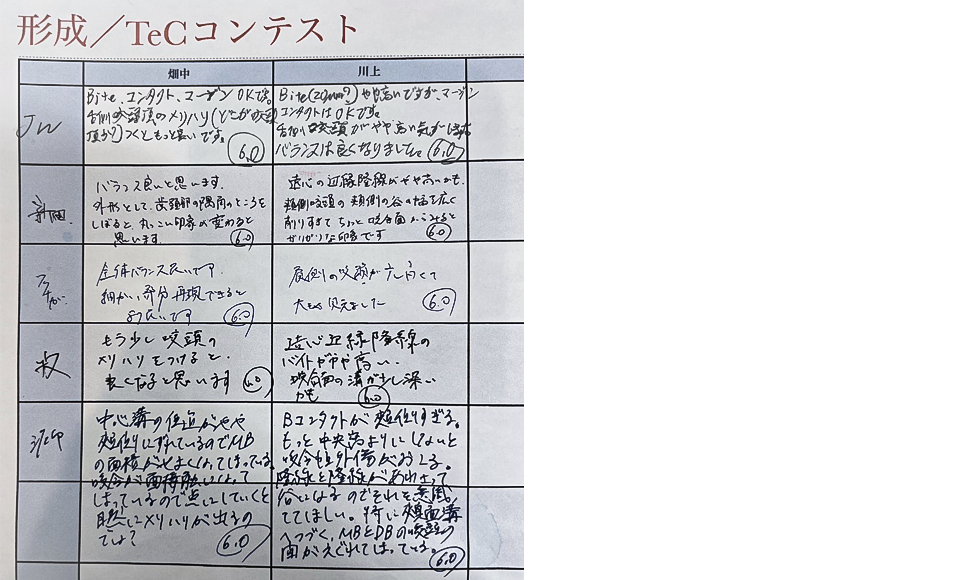 形成／TeCコンテスト
畑中
川上
JW
Bite、コンタクト、マージン OKです。
舌側咬頭頂のメリハリ(どこが咬頭
頂か?)つくともっと良いです。
6.0
Bite(20mm²)やや高いですが、マージン
コンタクトはOKです。
舌側咬頭がやや高い気がします
バランスは良くなりました。
6.0
バランス良いと思います。
外形として、歯頸部の隅角のところを
しぼると、丸っこい印象が変わると
思います。
6.0
遠心の辺縁隆線がやや高いかも。
頬側咬頭の頬側の谷の幅を広く
削りすぎて ちょっと咬合面からみると
ガリガリな印象です
6.0
全体バランス良いです。
細かい部分再現できると
より良いです
6.0
6.0
大きく見えました
もう少し咬頭の
メリハリをつけると、
良くなると思います
6.0
遠心辺縁隆線の
バイトがやや高い。
咬合面の溝が少し深い
かも
6.0
中心溝の位置がやや
頬側にずれているのでMB
の面積がせまくなってしまっている
咬合が面接触になって
しまっているので点にしていくと
自然にメリハリが出るの
では?
6.0
Bコンタクトが頬側すぎる。
もっと中央窩よりにしないと
隆線と隆線があわさって
谷になるのでそれを意識
してほしい。特に頬面溝
へつづく、MBとDBの咬頭の
間がえぐれてしまっている。
6.0